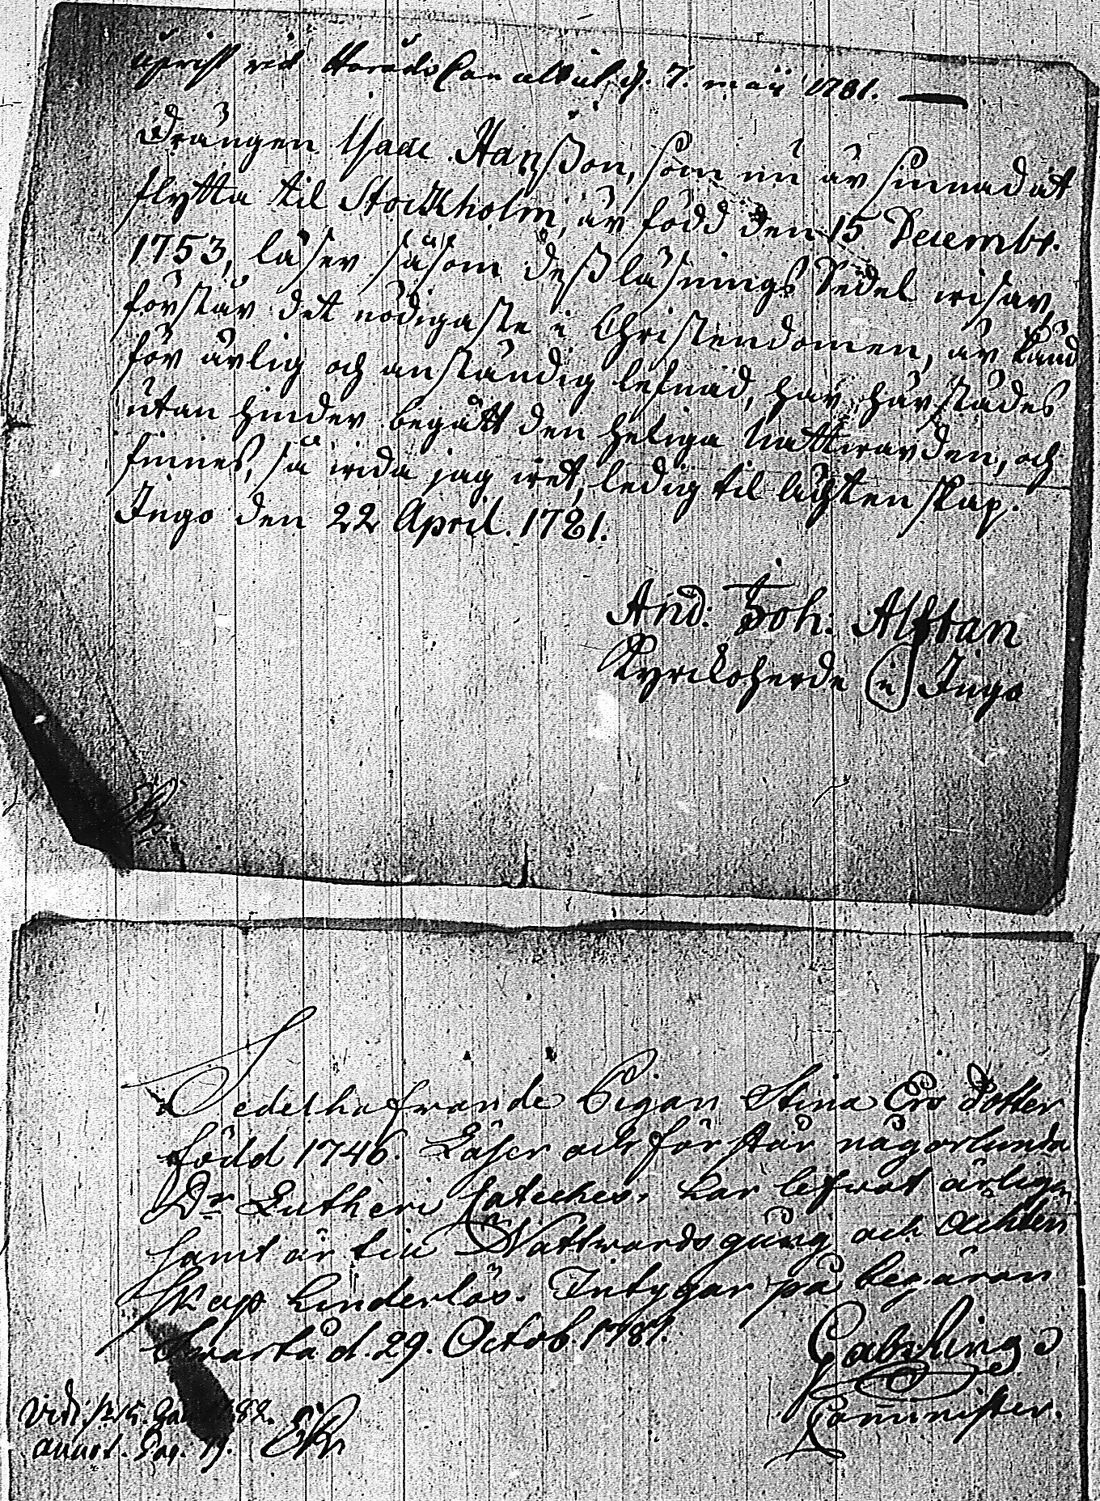 upvist vid Härads d. 7. maii 1781.
Drängen Isaac Hanßon, som nu är sinnad at
flytta til Stockholm, är född den 15 Decembr.
1753, läser såsom deß läsnings Sedel wisar,
förstår det nödigaste i Christendomen, är känd
för ärlig och anständig lefnad, har härstädes
utan hinder begått den heliga Nattwarden, och
finnes, så wida jag wet, ledig til äghtenskap.
Ingo den 22 April. 1781.
And: Joh: Alftan
Kyrckoherde i Ingo
Sedelhafwande Pigan Stina Ers dotter
född 1746. Läser och förstår någorlunda
Dr Lutheri Cateches. har lefwat ärligen
samt är till Nattwards gång och Achten
skap hinderlös. Intygar på begäran
Swarta d. 29. Octob. 1781.
Comminister.